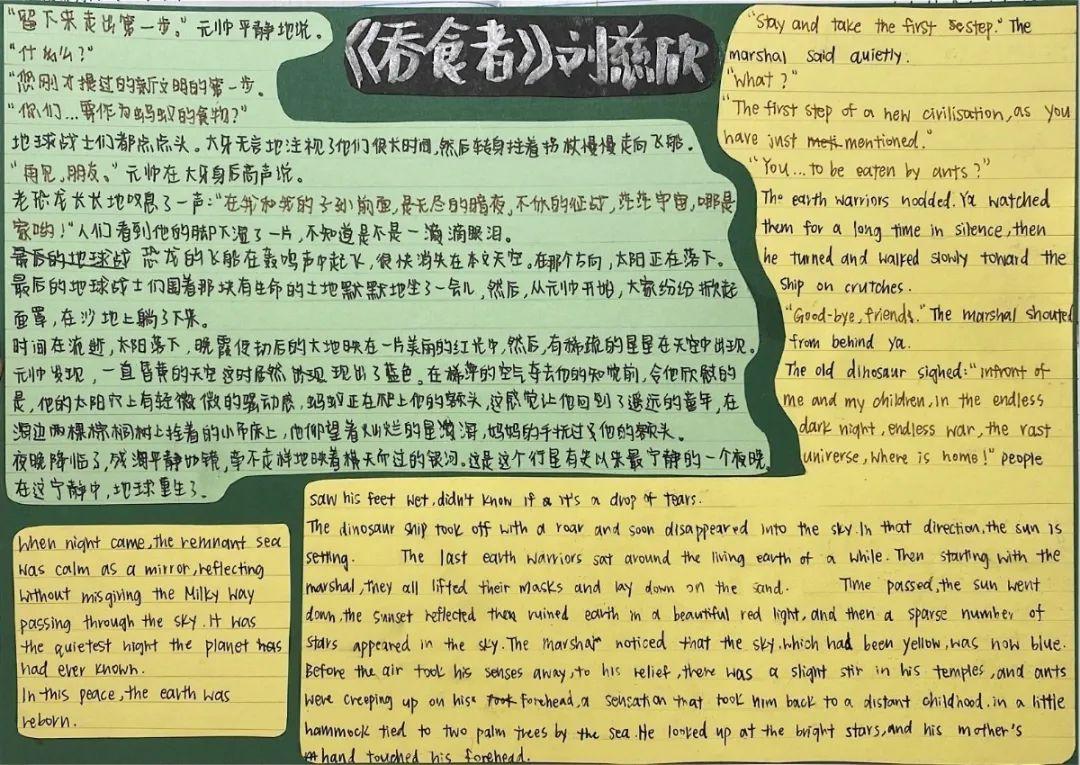 《吞食者》刘慈欣
“留下来走出第一步。”元帅平静地说。
“什么？”
“您刚才提过的新文明的第一步。
“你们…要作为蚂蚁的食物？”
地球战士们都点点头。大牙无言地注视了他们很长时间，然后转身拄着拐杖慢慢走向飞船。
“再见，朋友。”元帅在大牙身后高声说。
老恐龙长长地叹息了一声：“在我和我的子孙前面，是无尽的暗夜，不休的征战，茫茫宇宙，哪是
家哟！”人们看到他的脚下湿了一片，不知道是不是一滴滴眼泪。
最后的地球战 恐龙的飞船在轰鸣声中起飞，很快消失在天空。在那个方向，太阳正在落下。
最后的地球战士们围着那块有生命的土地默默地坐了一会儿，然后，从元帅开始，大家纷纷掀起
面罩，在沙地上躺了下来。
时间在流逝，太阳落下，晚霞使劫后的大地映在一片美丽的红光中，然后，有稀疏的星星在天空中出现。
元帅发现，一直昏黄的天空这时居然现出了蓝色。在稀薄的空气夺去他的知觉前，令他欣慰的
是，他的太阳穴上有轻微微的骚动感，蚂蚁正在爬上他的额头，这感觉让他回到了遥远的童年，在
海边两棵棕榈树上拴着的小吊床上，他仰望着灿烂的星海，妈妈的手抚过了他的额头。
夜晚降临了，残海平静如镜，毫不走样地映着横天而过的银河。这是这个行星有史以来最宁静的一个夜晚。
在这宁静中，地球重生了。
“Stay and take the first step.” The
marshal said quietly.
“What?”
“The first step of a new civilisation, as you
have just mentioned.”
“You... to be eaten by ants?”
The earth warriors nodded. Ya watched
them for a long time in silence, then
he turned and walked slowly toward the
ship on crutches.
“Good-bye, friends.” The marshal shouted
from behind ya.
The old dinosaur sighed: “infront of
me and my children, in the endless
dark night, endless war, the rast
universe, where is home!” people
saw his feet wet, didn't know if it's a drop of tears.
The dinosaur ship took off with a roar and soon disappeared into the sky. In that direction, the sun is
setting. The last earth warriors sat around the living earth of a while. Then starting with the
marshal, they all lifted their masks and lay down on the sand. Time passed, the sun went
down, the sunset reflected the ruined earth in a beautiful red light, and then a sparse number of
stars appeared in the sky. The marshal noticed that the sky, which had been yellow, was now blue.
Before the air took his senses away, to his relief, there was a slight stir in his temples, and ants
were creeping up on his forehead, a sensation that took him back to a distant childhood. in a little
hammock tied to two palm trees by the sea. He looked up at the bright stars, and his mother's
hand touched his forehead.
When night came, the remnant sea
was calm as a mirror, reflecting
without misgiving the Milky Way
passing through the sky. It was
the quietest night the planet
had ever known.
In this peace, the earth was
reborn.